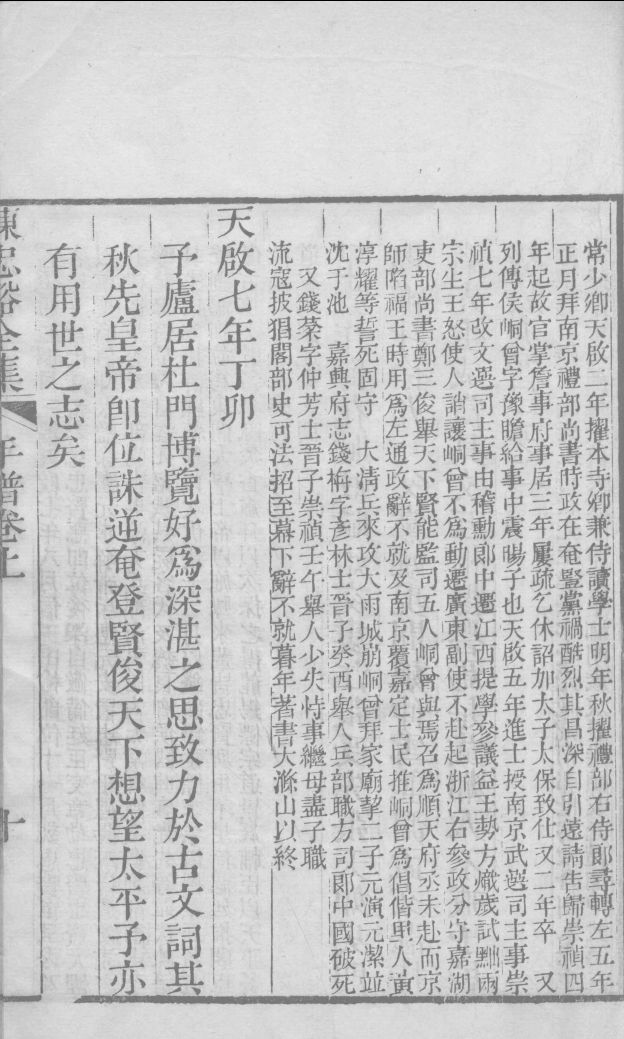 常少卿天啟二年擢本寺卿兼侍讀學士明年秋擢禮部右侍郎尋轉左五年
正月拜南京禮部尚書時政在奄豎黨禍酷烈其昌深自引遠請告歸崇禎四
年起故官掌詹事府事居三年屢疏乞休詔加太子太保致仕又二年卒　又
列傳侯峒曾字豫瞻給事中震暘子也天啟五年進士授南京武選司主事崇
禎七年改文選司主事由稽勳郎中遷江西提學參議益王勢方熾歲試黜兩
宗生王怒使人誚讓峒曾不為動遷廣東副使不赴起浙江右參政分守嘉湖
吏部尚書鄭三俊舉天下賢能監司五人峒曾與焉召為順天府丞未赴而京
師陷福王時用為左通政辭不就及南京覆嘉定士民推峒曾為倡偕里人黃
淳耀等誓死固守　大清兵來攻大雨城崩峒曾拜家廟挈二子元演元潔並
沈于池　嘉興府志錢栴字彥林士晉子癸酉舉人兵部職方司郎中國破死
又錢棻字仲芳士晉子崇禎壬午舉人少失恃事繼母盡子職
流寇披猖閣部史可法招至幕下辭不就暮年著書大滌山以終
天啟七年丁卯
予廬居杜門博覽好為深湛之思致力於古文詞其
秋先皇帝卽位誅逆奄登賢俊天下想望太平予亦
有用世之志矣
陳忠裕全集　年譜卷上　十